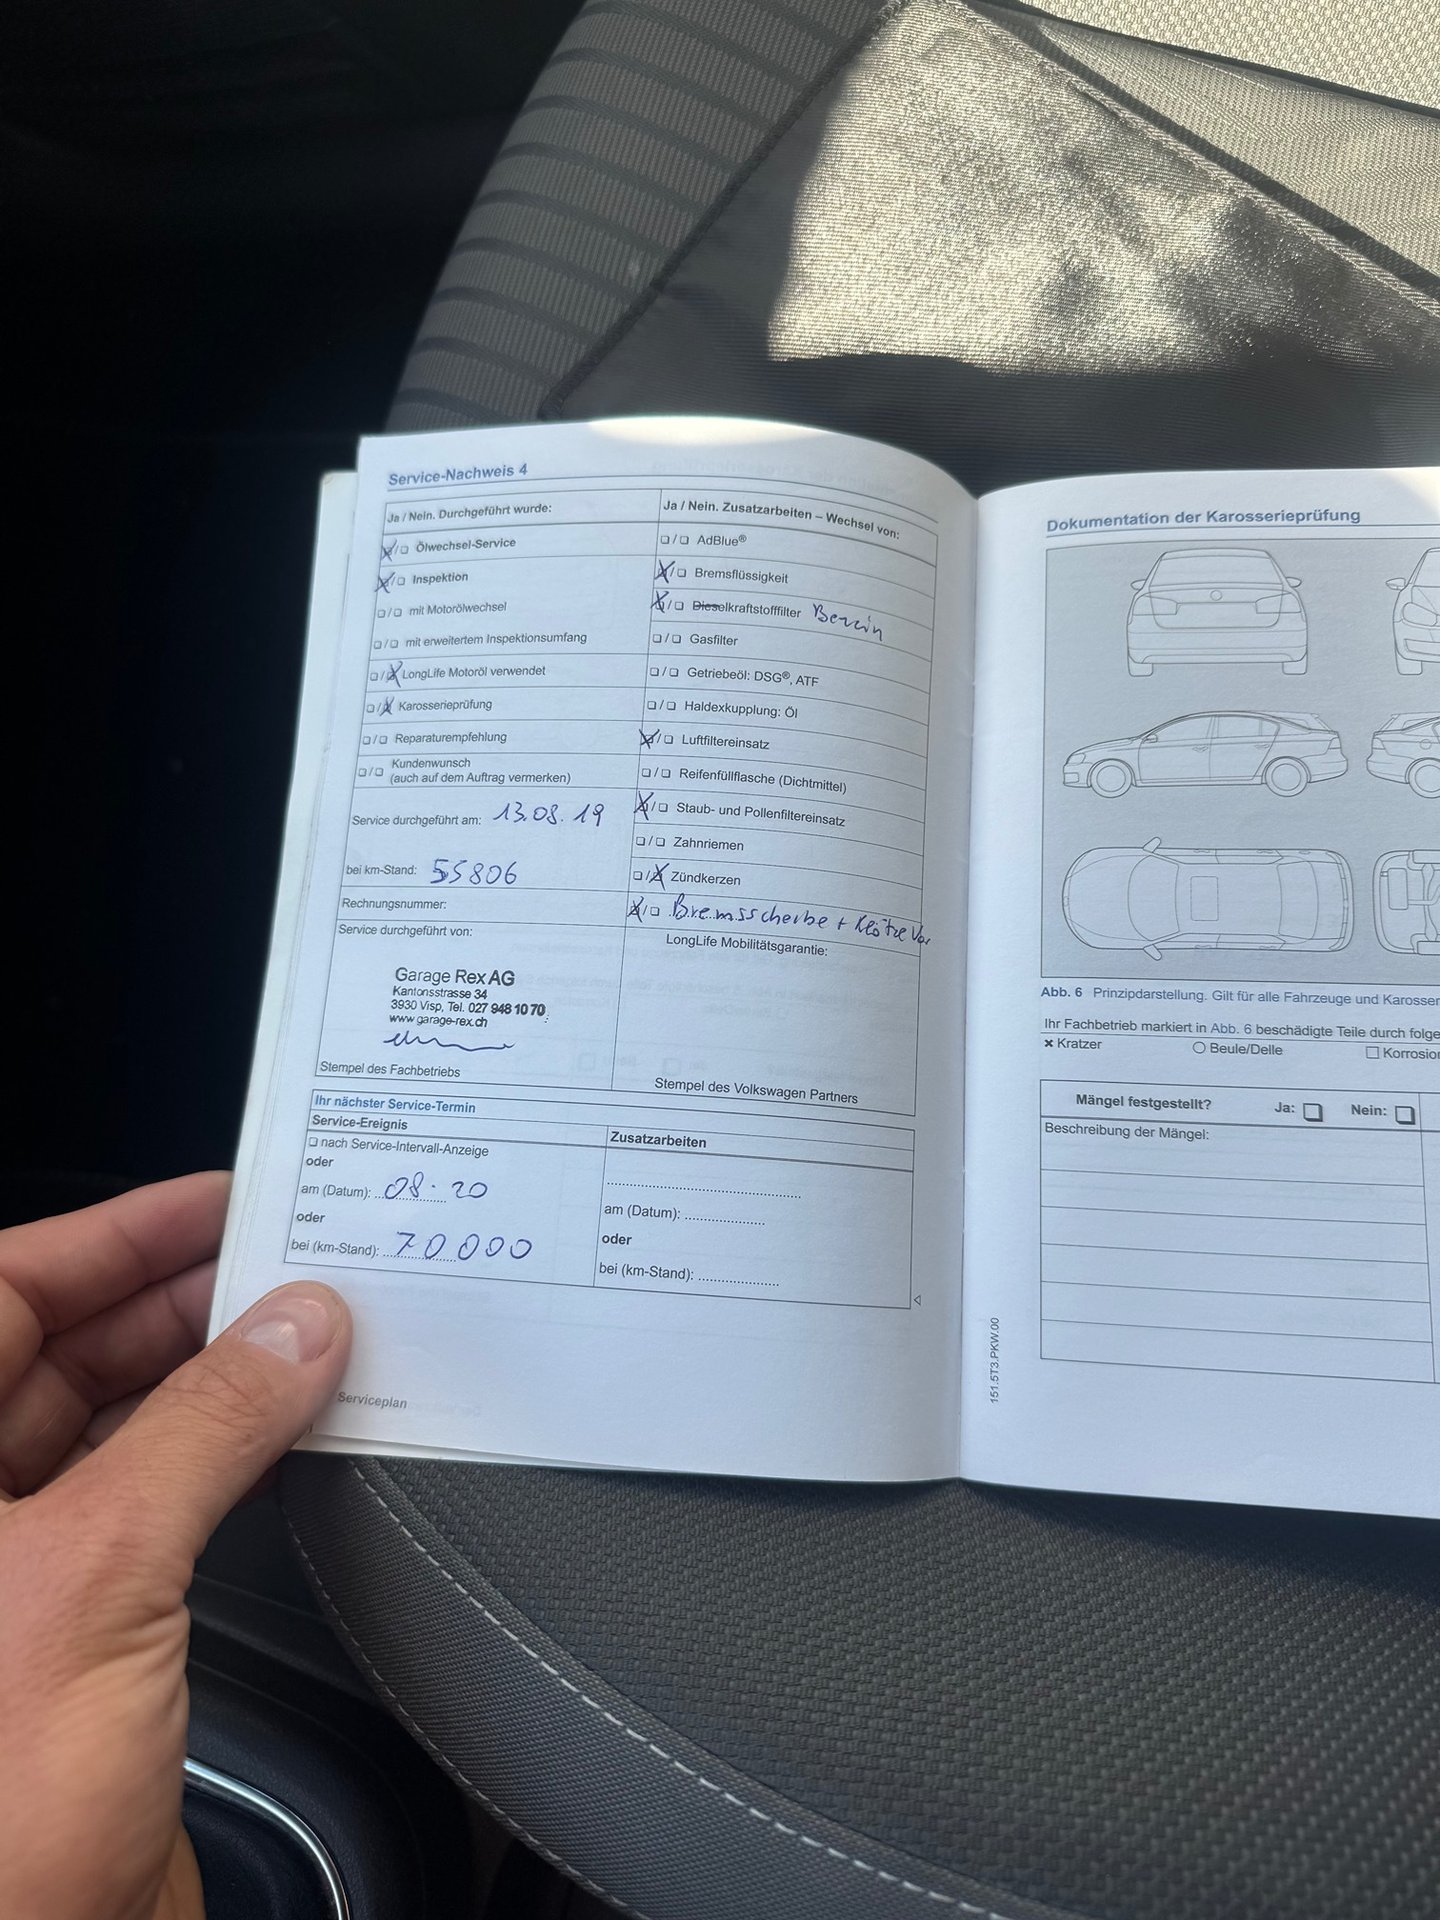 Service-Nachweis 4
Ja / Nein. Durchgeführt wurde:
☒/☐ Ölwechsel-Service
☒/☐ Inspektion
☐/☐ mit Motorölwechsel
☐/☐ mit erweitertem Inspektionsumfang
☐/☒ LongLife Motoröl verwendet
☐/☒ Karosserieprüfung
☐/☐ Reparaturempfehlung
☐/☐ Kundenwunsch
(auch auf dem Auftrag vermerken)
Service durchgeführt am: 13.08.19
bei km-Stand: 55806
Rechnungsnummer:
Service durchgeführt von:
Garage Rex AG
Kantonsstrasse 34
3930 Visp, Tel. 027 948 10 70
www.garage-rex.ch
Stempel des Fachbetriebs
Ja / Nein. Zusatzarbeiten – Wechsel von:
☐/☐ AdBlue®
☒/☐ Bremsflüssigkeit
☒/☐ Dieselkraftstofffilter Benzin
☐/☐ Gasfilter
☐/☐ Getriebeöl: DSG®, ATF
☐/☐ Haldexkupplung: Öl
☒/☐ Luftfiltereinsatz
☐/☐ Reifenfüllflasche (Dichtmittel)
☒/☐ Staub- und Pollenfiltereinsatz
☐/☐ Zahnriemen
☐/☒ Zündkerzen
☒/☐ Bremsscheibe + Klötze Vor
LongLife Mobilitätsgarantie:
Stempel des Volkswagen Partners
Ihr nächster Service-Termin
Service-Ereignis
☐ nach Service-Intervall-Anzeige
oder
am (Datum): 08.20
oder
bei (km-Stand): 70000
Zusatzarbeiten
am (Datum):
oder
bei (km-Stand):
Serviceplan
Dokumentation der Karosserieprüfung
Abb. 6 Prinzipdarstellung. Gilt für alle Fahrzeuge und Karosser
Ihr Fachbetrieb markiert in Abb. 6 beschädigte Teile durch folge
× Kratzer ○ Beule/Delle ☐ Korrosion
Mängel festgestellt? Ja: ☐ Nein: ☐
Beschreibung der Mängel:
151.5T3.PKW.00